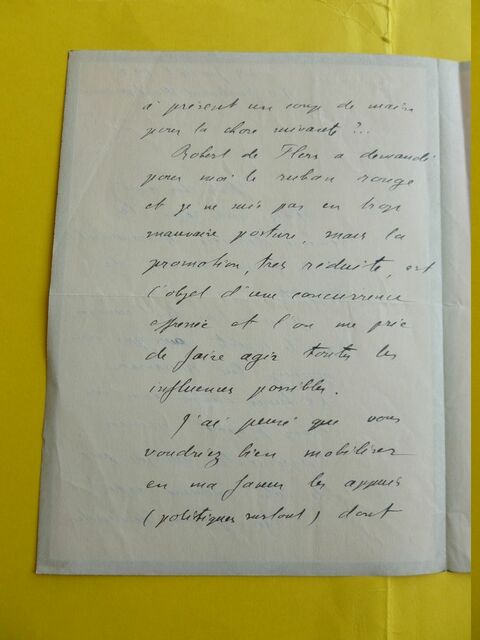 à présent un coup de main
pour la chose suivante ?..
Robert de Flers a demandé
pour moi le ruban rouge
et je ne suis pas en trop
mauvaise posture, mais la
promotion, très réduite, est
l'objet d'une concurrence
effrénée et l'on me prie
de faire agir toutes les
influences possibles.
J'ai pensé que vous
voudriez bien mobiliser
en ma faveur les appuis
(politiques surtout) dont